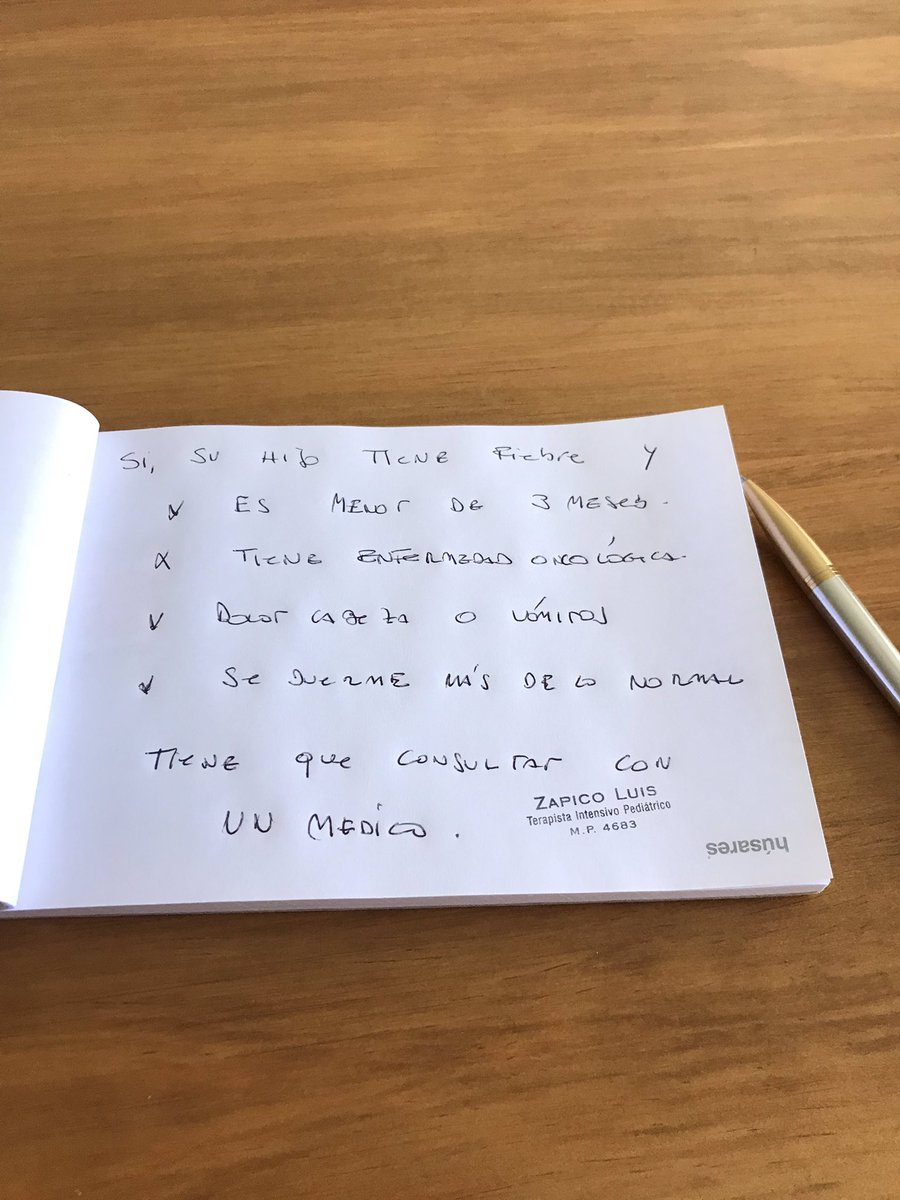 Si, su hijo tiene fiebre y
✓ Es menor de 3 meses.
x Tiene enfermedad oncológica.
✓ Dolor cabeza o vómitos
✓ Se duerme más de lo normal
Tiene que consultar con
un medico.
ZAPICO LUIS
Terapista Intensivo Pediátrico
M.P. 4683
húsares